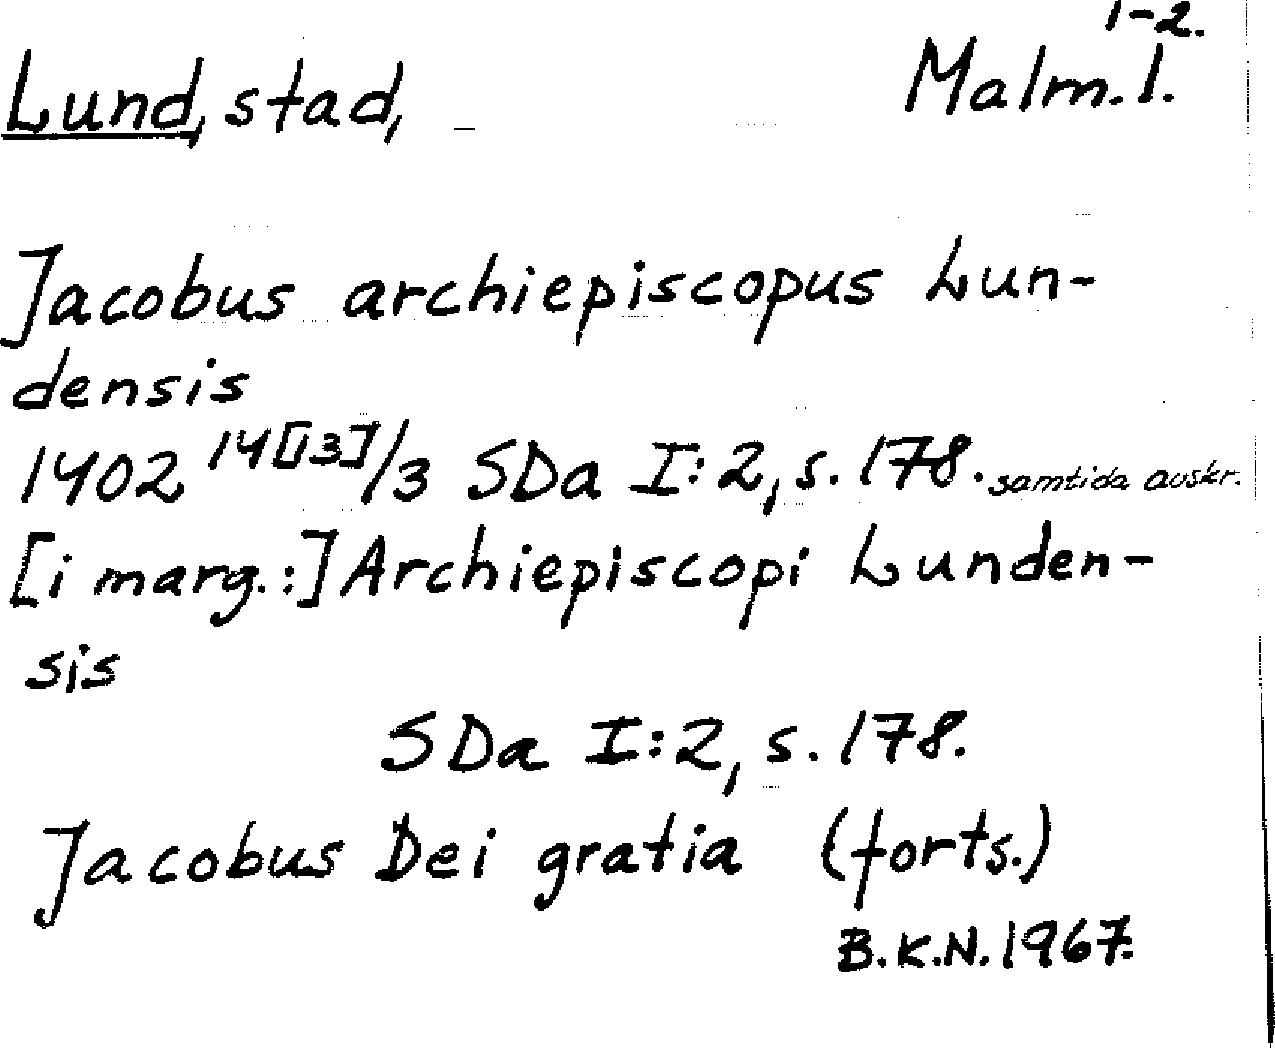 1-2.
Lund, stad, Malm. l.
Jacobus archiepiscopus Lun-
densis
1402 14[13]/3 SDa I:2, s. 178. samtida avskr.
[i marg.:] Archiepiscopi Lunden-
sis
SDa I:2, s. 178.
Jacobus Dei gratia (forts.)
B.K.N. 1967.